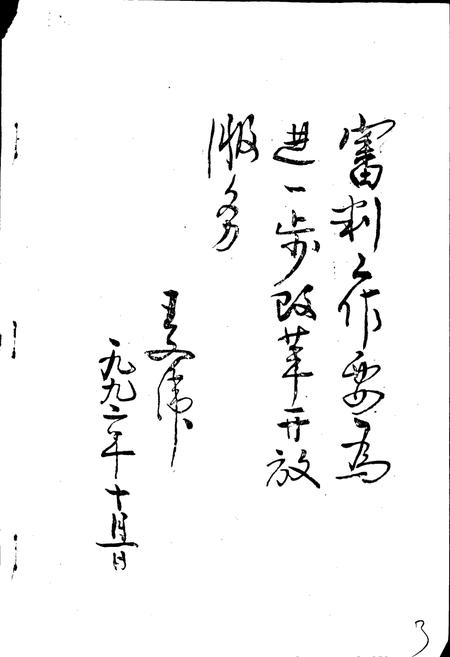 審判工作要為
进一步改革开放
服务
王文
一九九二年十月一日
3